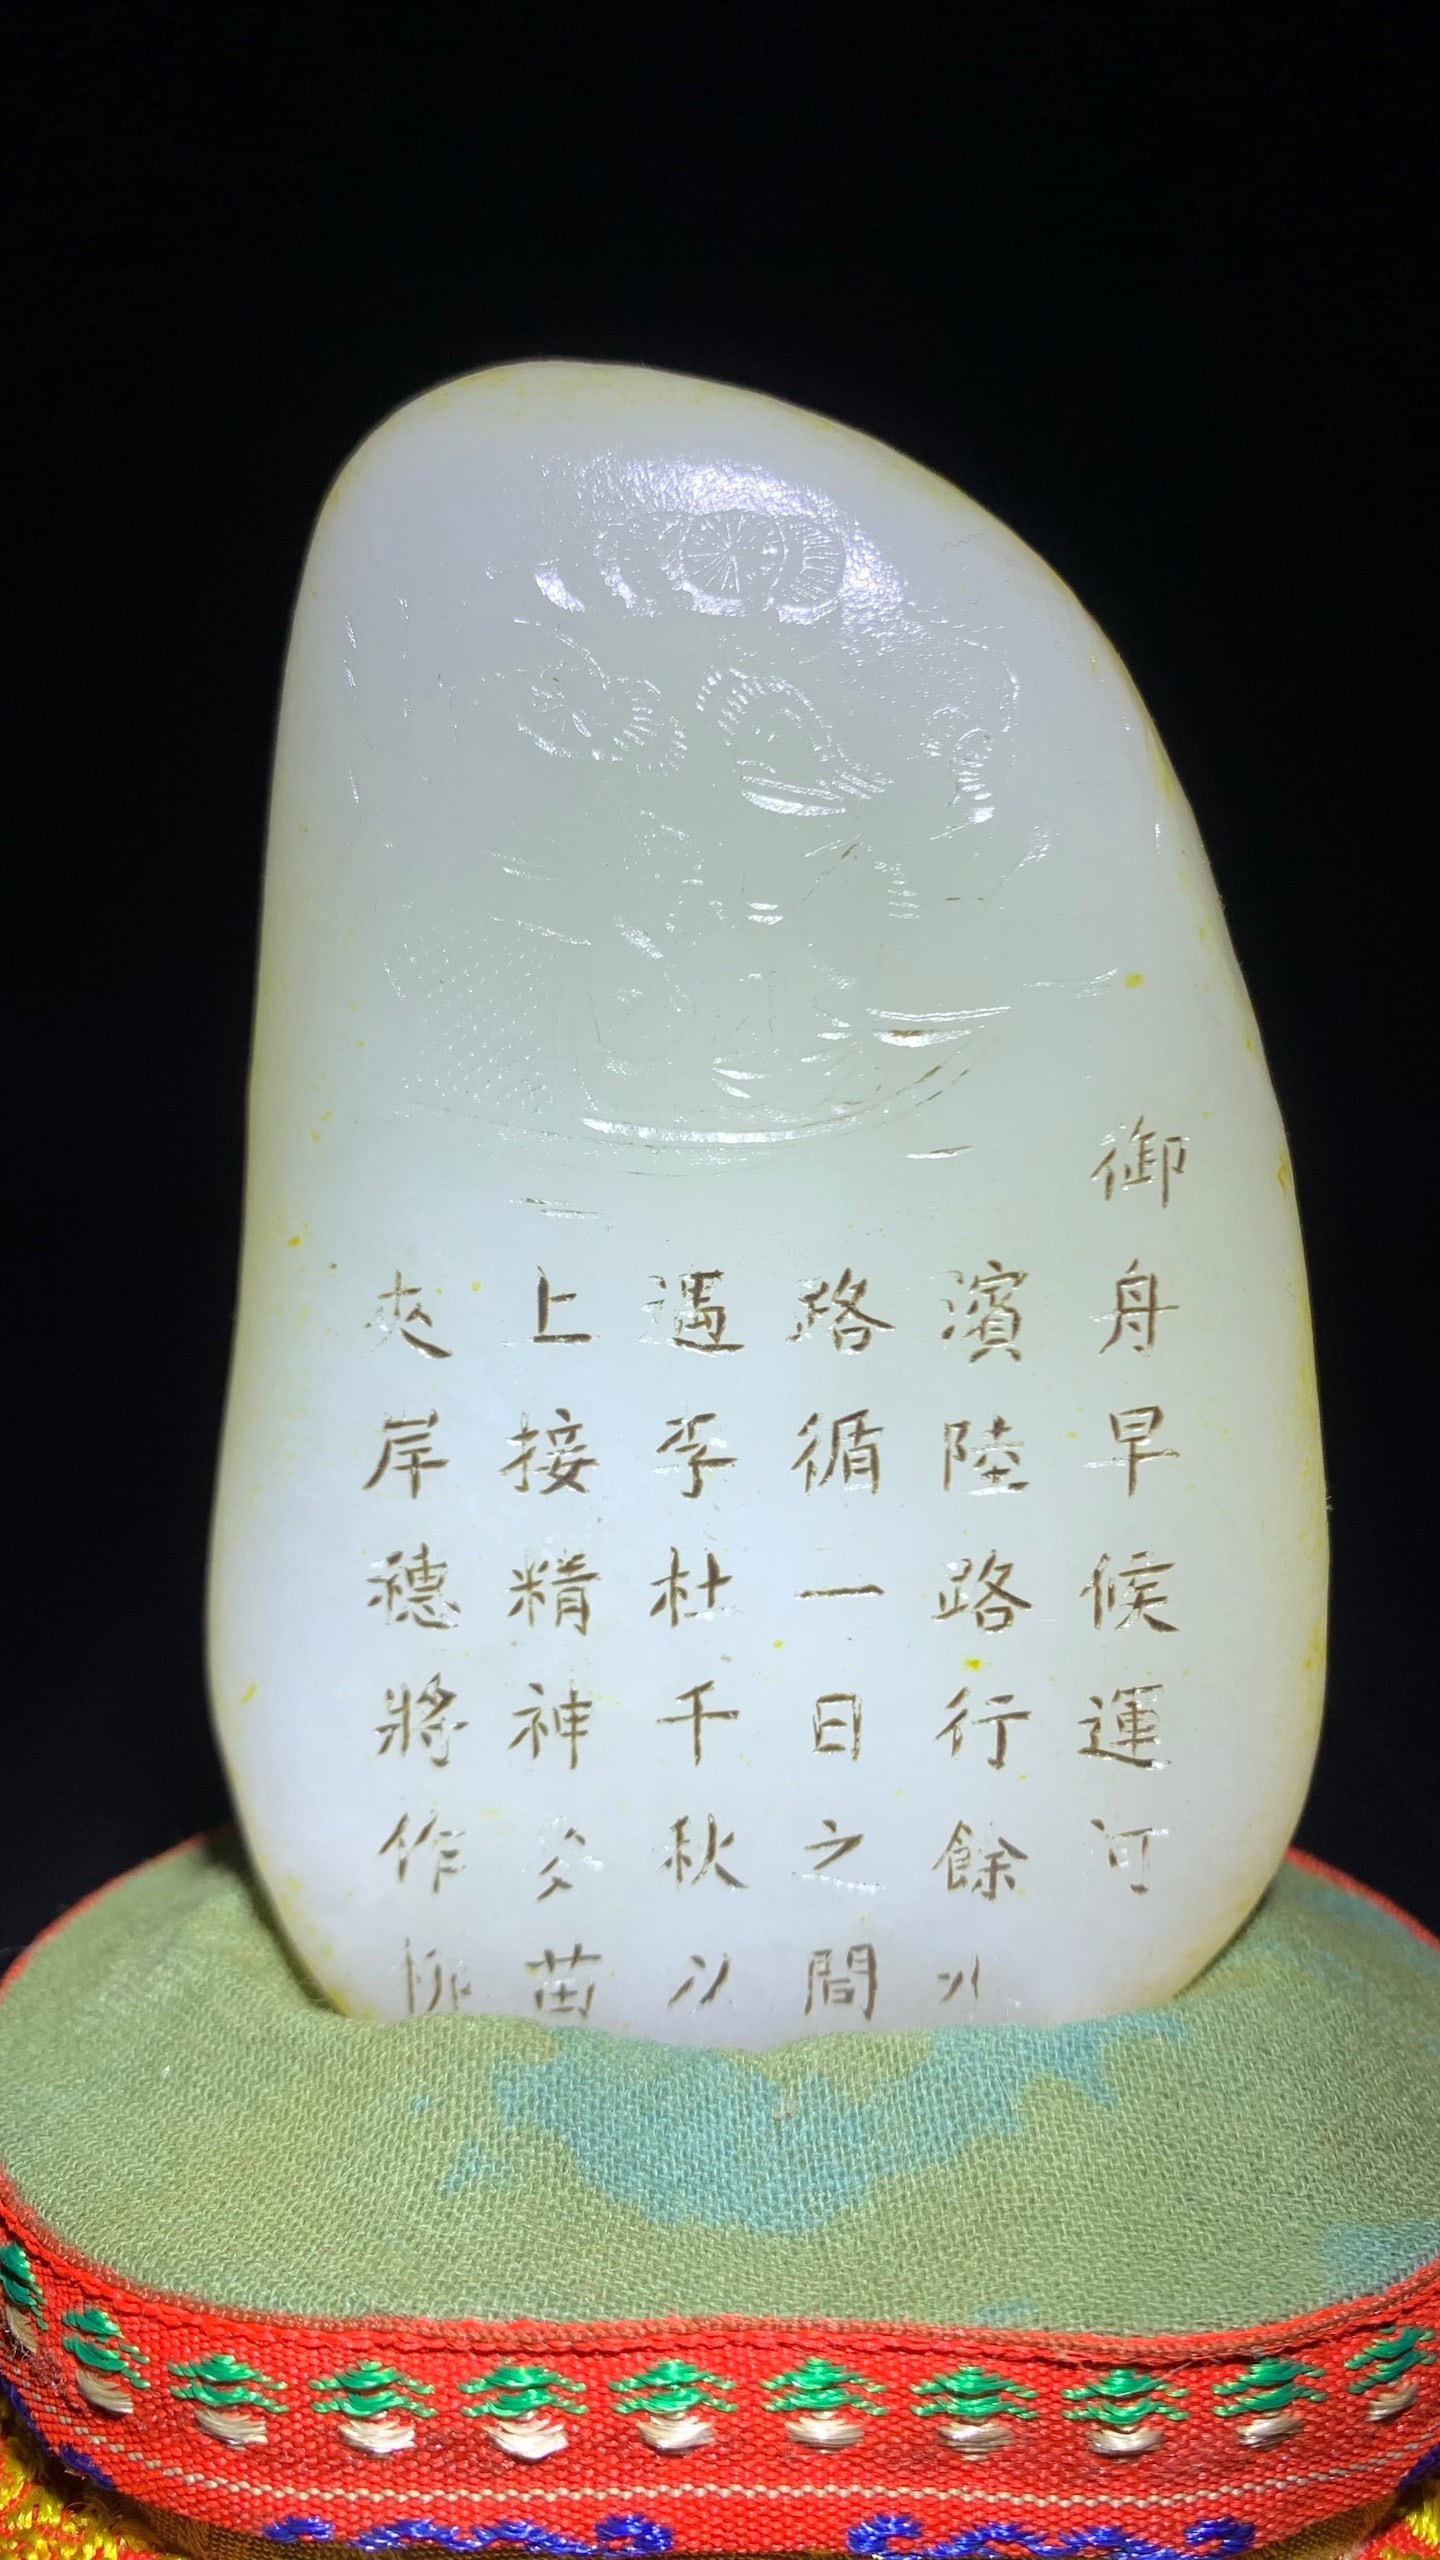 御舟早候運河
濱陸路行餘
路循一日之間
遇李杜千秋
上接精神多苗
夾岸穗將作